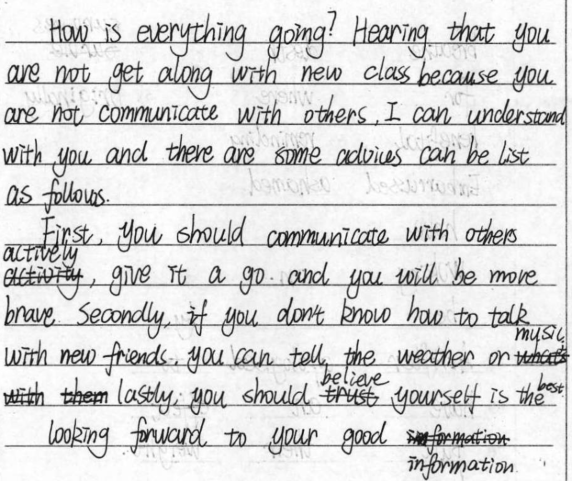 How is everything going? Hearing that you
are not get along with new class because you
are not communicate with others, I can understand
with you and there are some advices can be list
as follows.
First, you should communicate with others
actively
activity, give it a go. and you will be more
brave. Secondly, if you don't know how to talk
music.
with new friends. you can tell the weather or what's
believe best
with them lastly, you should trust yourself is the
looking forward to your good information
information